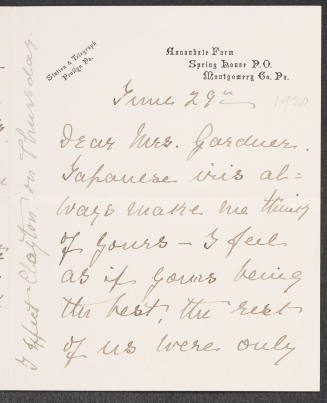 Station & Telegraph
Penllyn Pa.
Annandale Farm
Spring House P.O.
Montgomery Co. Pa.
June 29th 1920
Dear Mrs. Gardner.
Japanese iris al=
ways make me think
of yours – I feel
as if yours being
the best, the rest
of us were only
I expect Clayton on Thursday